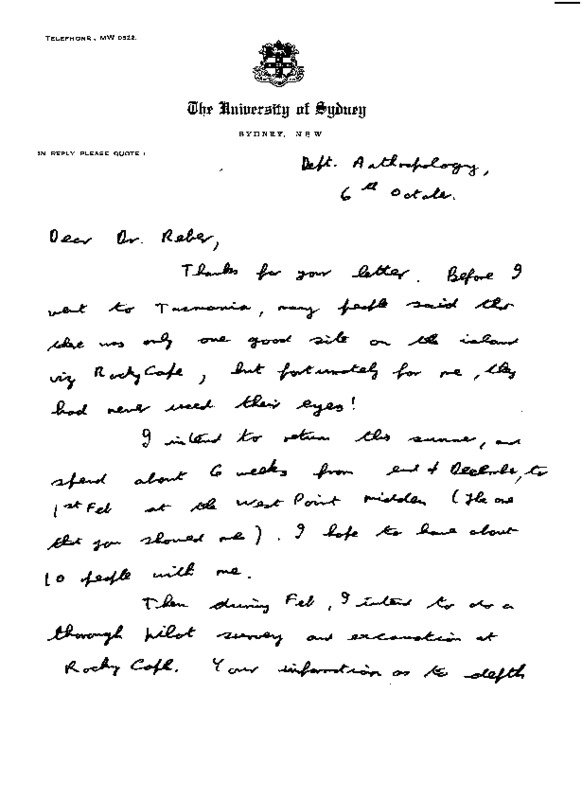 TELEPHONE, MW 0522.
The University of Sydney
SYDNEY, N S W
IN REPLY PLEASE QUOTE :
Dept. Anthropology,
6th October.
Dear Dr. Reber,
Thanks for your letter. Before I
went to Tasmania, many people said tha
there was only one good site on the island
viz Rocky Cape, but fortunately for me, they
had never used their eyes!
I intend to return this summer, and
spend about 6 weeks from end of December, to
1st Feb at the West Point midden (the one
that you showed me). I hope to have about
10 people with me.
Then during Feb, I intend to do a
thorough pilot survey and excavation at
Rocky Cape. Your information as to depth